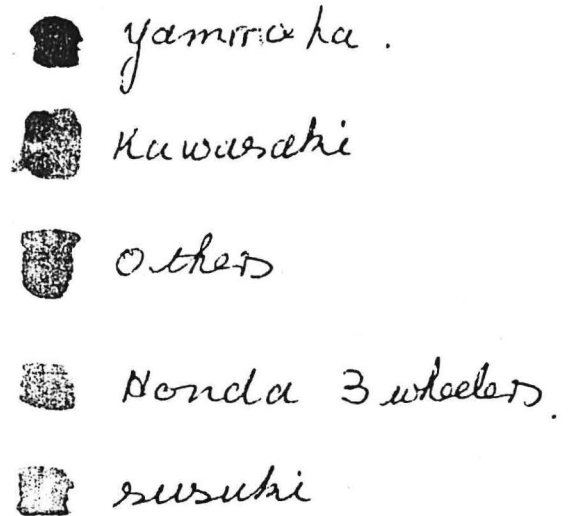 yammaha.
Kawasaki
Others
Honda 3 wheelers.
susuki